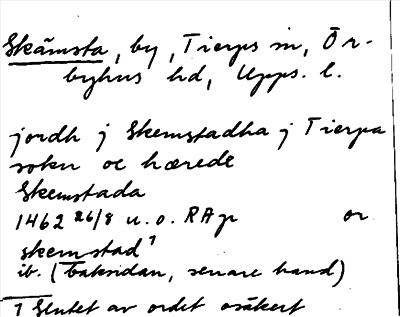 Skämsta, by, Tierps sn, Ör-
byhus hd, Upps. l.
jordh j Skemstadha j Tierpa
sokn oc hærede
Skemstada
1462 26/8 u. o. RAp or
skemstad¹
ib. (baksidan, senare hand)
1 Slutet av ordet osäkert